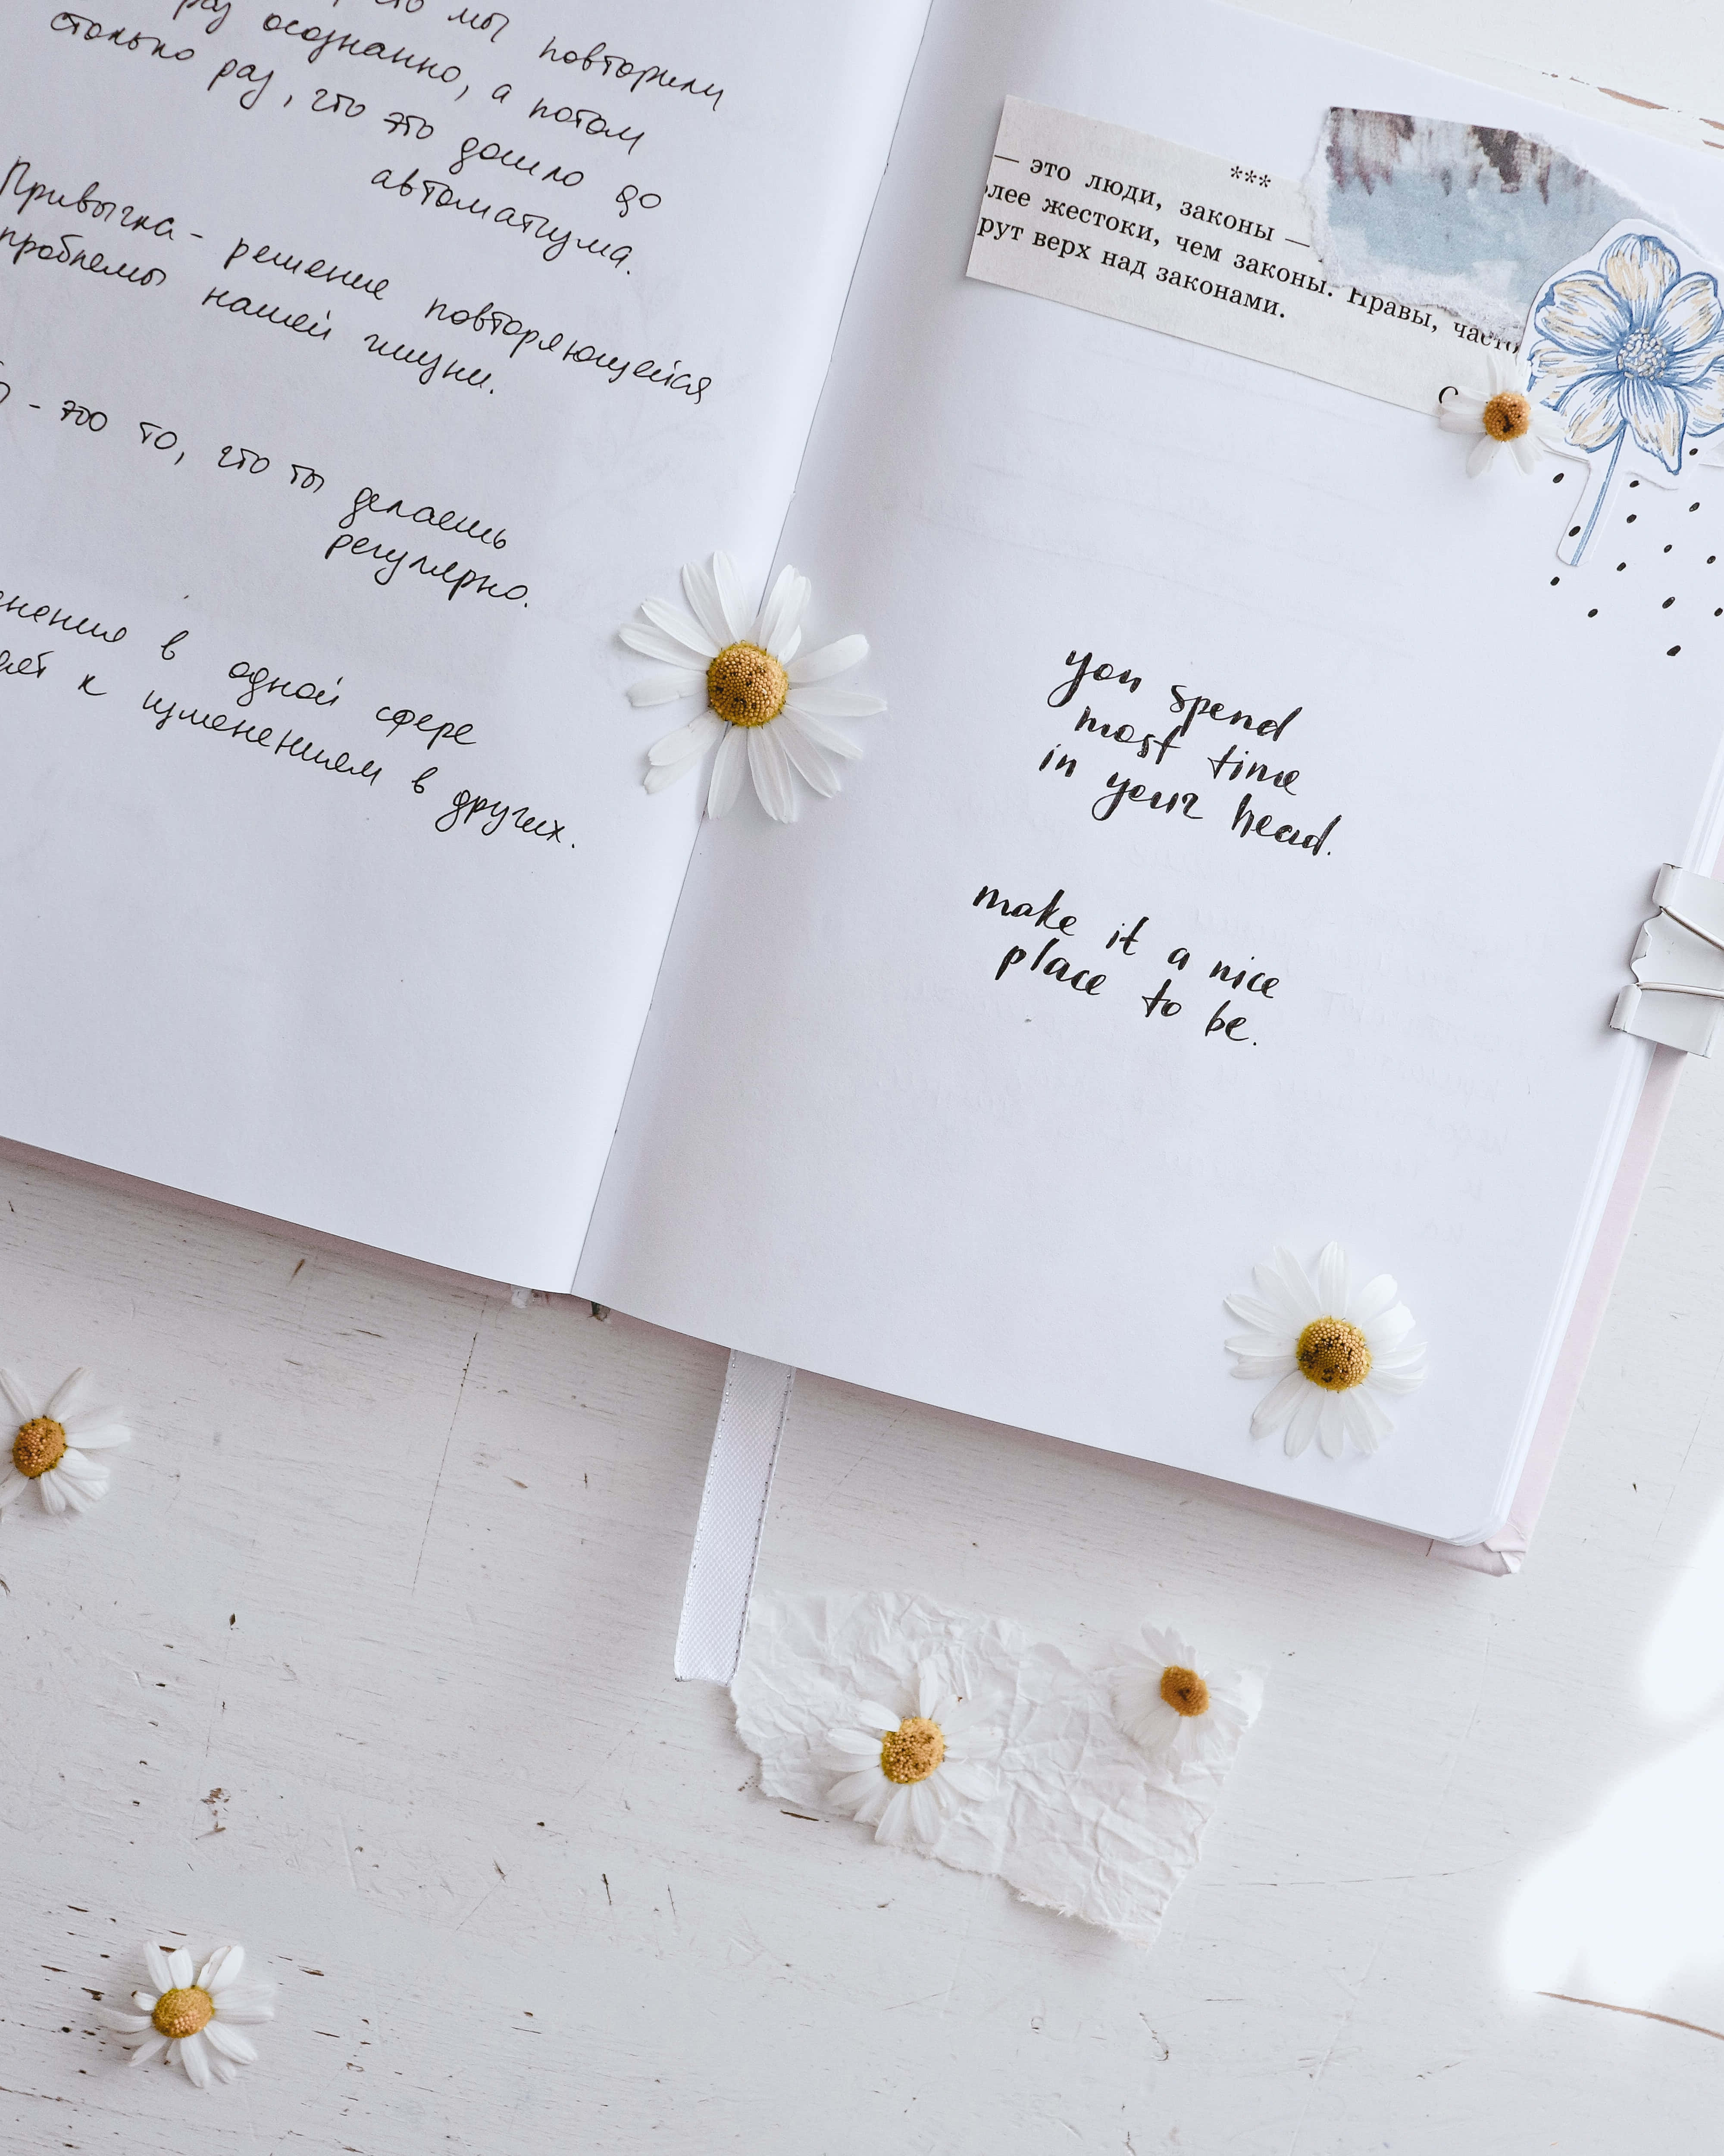 что мы повторили
раз осознанно, а потом
столько раз, что это дошло до
автоматизма.
Привычка - решение повторяющейся
проблемы нашей жизни.
- это то, что ты делаешь
регулярно.
в одной сфере
к изменениям в других.
***
— это люди, законы —
лее жестоки, чем законы. Нравы, часто
рут верх над законами.
you spend
most time
in your head.
make it a nice
place to be.